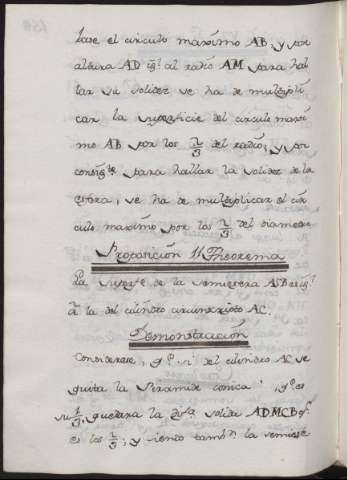 base el circulo maximo AB, y por
altura AD igl. al radio AM para hal
lar su solidez se ha de multipli
car la superficie del circulo maxi
mo AB por los 2/3 del radio, y por
consigte. para hallar la solidez de la
esfera, se ha de multiplicar el cir
culo maximo por los 2/3 del diametr
Proposicion 11 Theorema
La superfe. de la semiesfera ASB es igl.
à la del cilindro circunscripto AC.
Demonstracion
Considerese, q. si del cilindro AC se
quita la Piramide conica, q. es
su 1/3, quedara la solida ADMCB q.
es los 2/3; y siendo tambn. la semiesf